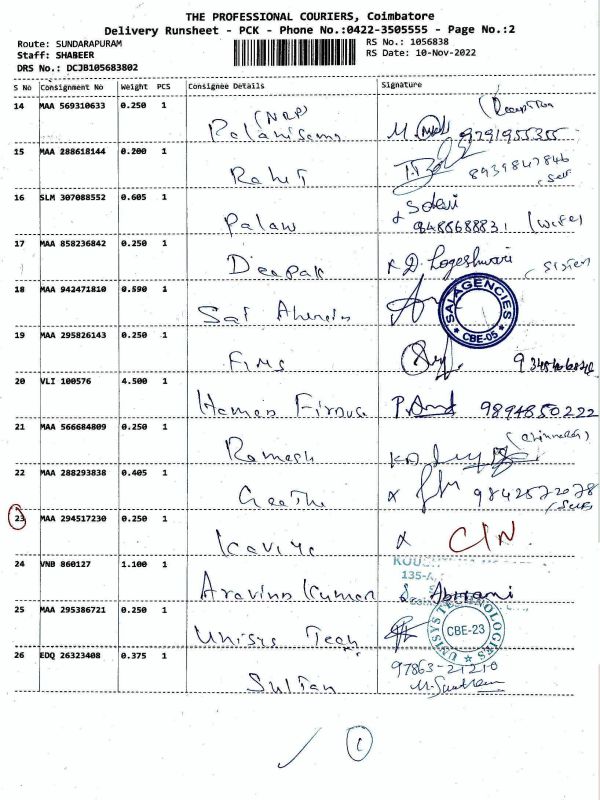 THE PROFESSIONAL COURIERS, Coimbatore
Delivery Runsheet - PCK - Phone No.:0422-3505555 - Page No.:2
Route: SUNDARAPURAM
RS No.: 1056838
Staff: SHABEER
RS Date: 10-Nov-2022
DRS No.: DCJB105683802
S No Consignment No Weight PCS Consignee Details Signature
14 MAA 569310633 0.250 1
(NRP) (Reception
Palanisamy M. 9791955355
15 MAA 288618144 0.200 1
Rohit 8939847846
Self
16 SLM 307088552 0.605 1
Palani 9486688831 (wife)
17 MAA 858236842 0.250 1
Deepak D. Logeshwari
Sister
18 MAA 942471810 0.590 1
Sai
SAI AGENCIES
★ CBE-05 ★
19 MAA 295826143 0.250 1
Fims
20 VLI 100576 4.500 1
9894850222
21 MAA 566684809 0.250 1
Ramesh
22 MAA 288293838 0.405 1
Geetha x 9842572078
/Self
23 MAA 294517230 0.250 1
Kaviya x CIN
24 VNB 860127 1.100 1
135-A,
Aravind Kumar
25 MAA 295386721 0.250 1
Unisys Tech
UNISYS TECHNOLOGIES
CBE-23
26 EDQ 26323408 0.375 1
97863-21210
Sultan